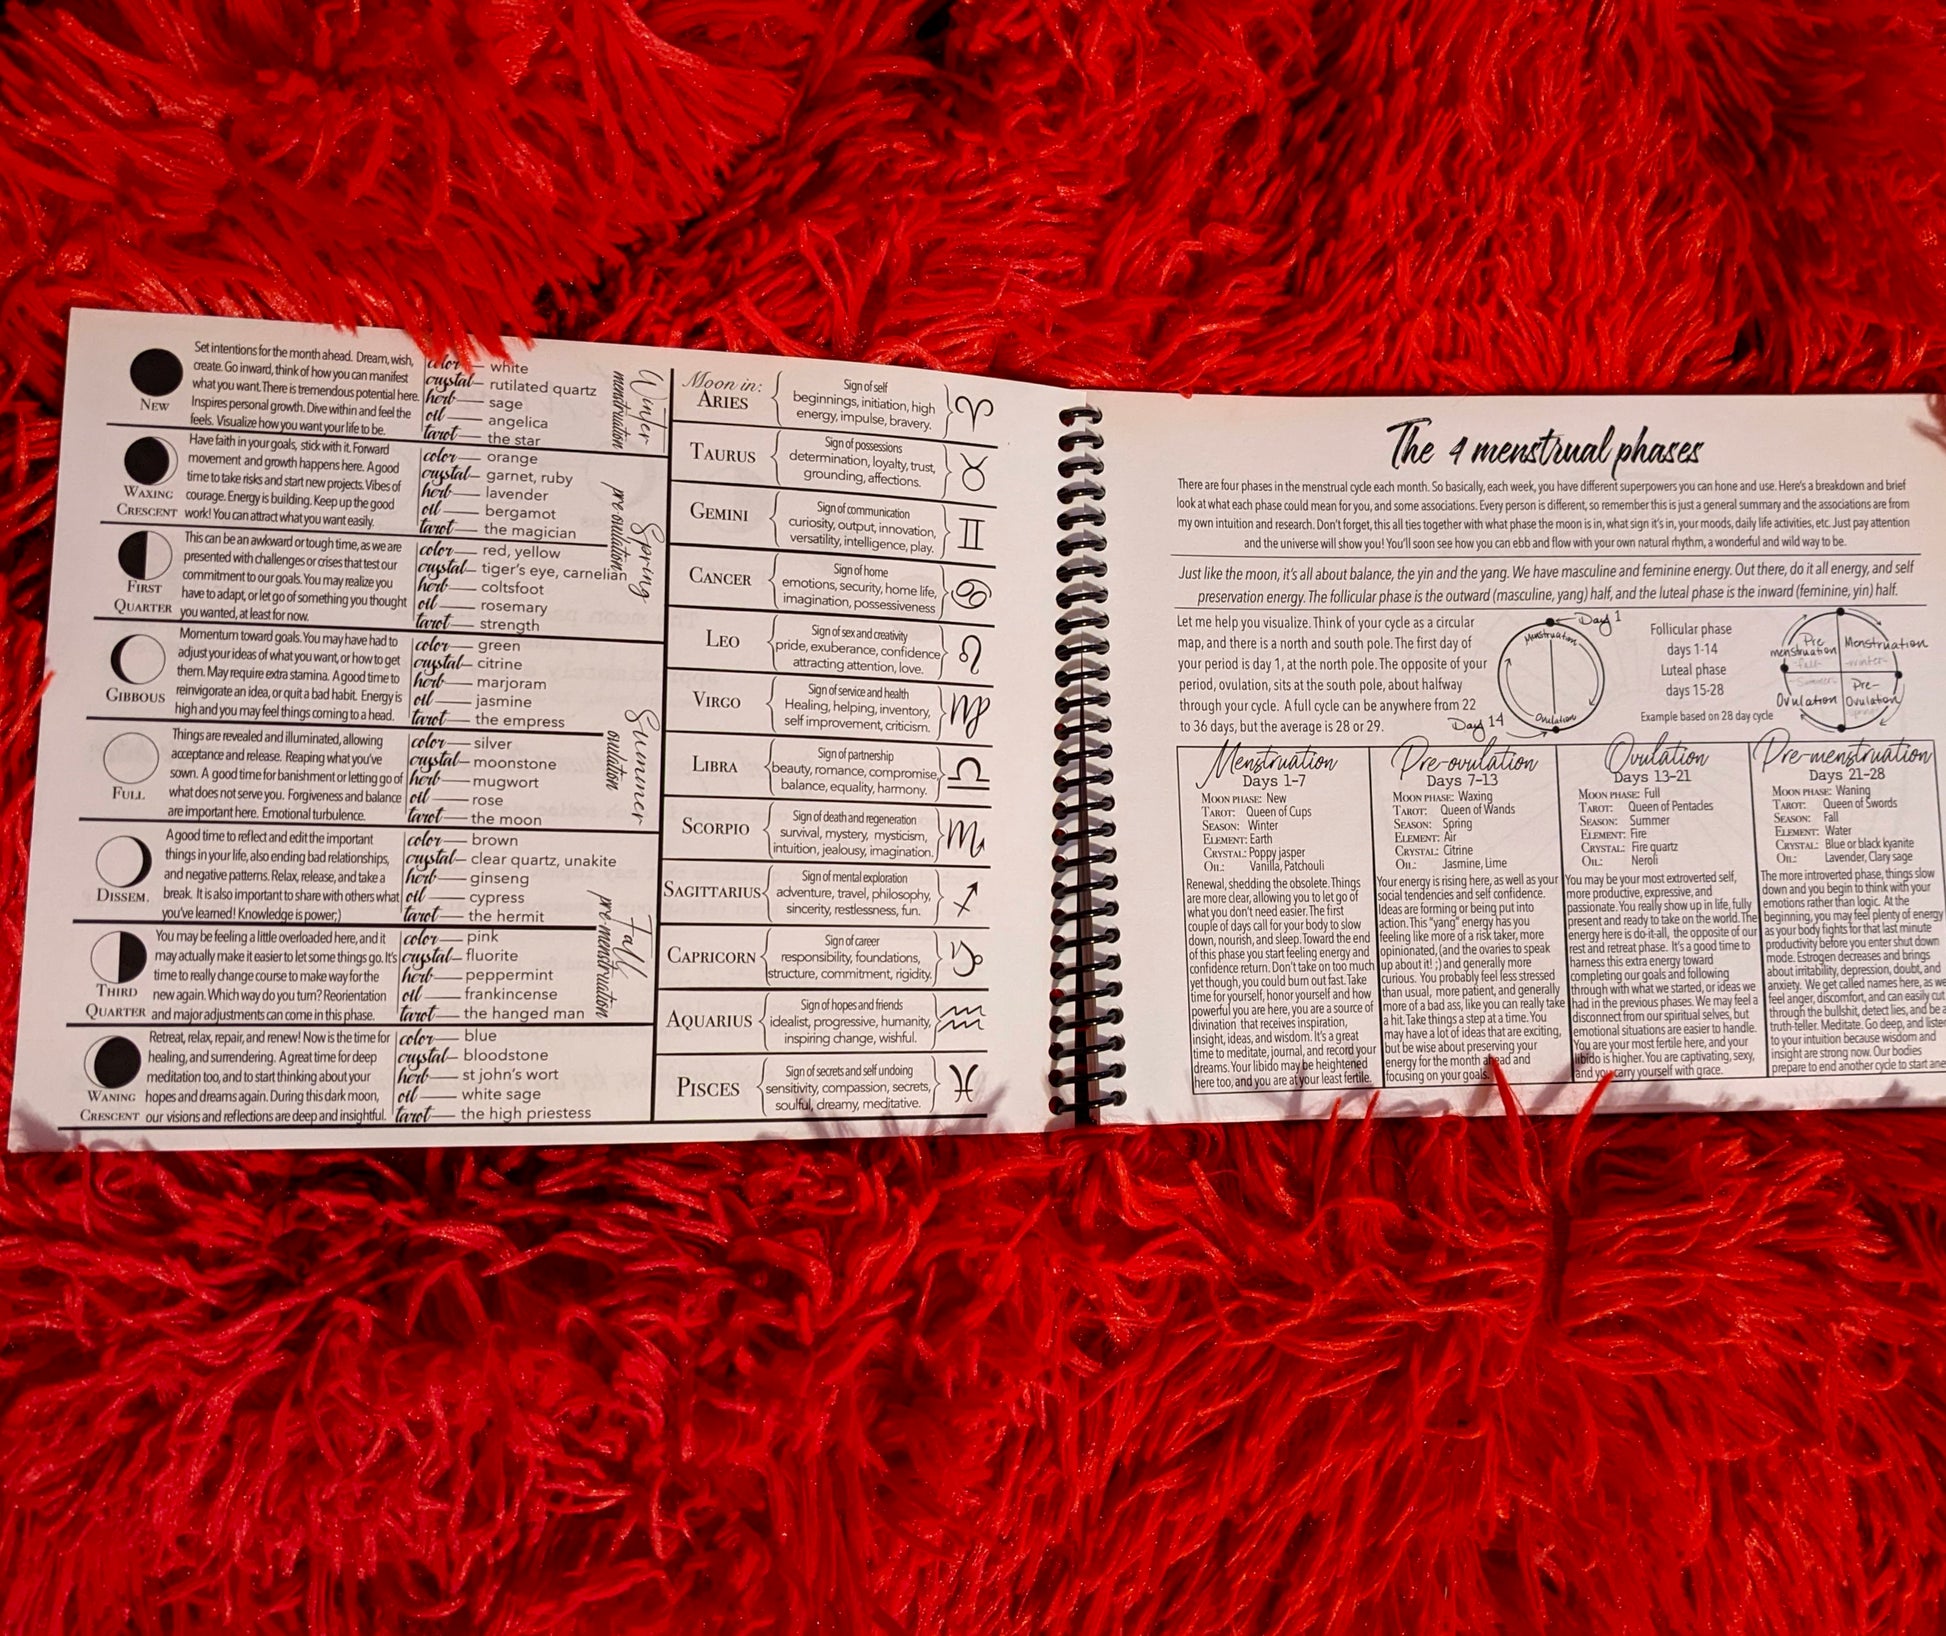 Set intentions for the month ahead. Dream, wish,
create. Go inward, think of how you can manifest
what you want. There is tremendous potential here.
Inspires personal growth. Dive within and feel the
feels. Visualize how you want your life to be.
NEW
color — white
crystal — rutilated quartz
herb — sage
oil — angelica
tarot — the star
Winter
menstruation
Have faith in your goals, stick with it. Forward
movement and growth happens here. A good
time to take risks and start new projects. Vibes of
courage. Energy is building. Keep up the good
work! You can attract what you want easily.
WAXING
CRESCENT
color — orange
crystal — garnet, ruby
herb — lavender
oil — bergamot
tarot — the magician
Spring
pre-ovulation
This can be an awkward or tough time, as we are
presented with challenges or crises that test our
commitment to our goals. You may realize you
have to adapt, or let go of something you thought
you wanted, at least for now.
FIRST
QUARTER
color — red, yellow
crystal — tiger's eye, carnelian
herb — coltsfoot
oil — rosemary
tarot — strength
Momentum toward goals. You may have had to
adjust your ideas of what you want, or how to get
them. May require extra stamina. A good time to
reinvigorate an idea, or quit a bad habit. Energy is
high and you may feel things coming to a head.
GIBBOUS
color — green
crystal — citrine
herb — marjoram
oil — jasmine
tarot — the empress
Summer
ovulation
Things are revealed and illuminated, allowing
acceptance and release. Reaping what you've
sown. A good time for banishment or letting go of
what does not serve you. Forgiveness and balance
are important here. Emotional turbulence.
FULL
color — silver
crystal — moonstone
herb — mugwort
oil — rose
tarot — the moon
A good time to reflect and edit the important
things in your life, also ending bad relationships,
and negative patterns. Relax, release, and take a
break. It is also important to share with others what
you've learned! Knowledge is power;)
DISSEM.
color — brown
crystal — clear quartz, unakite
herb — ginseng
oil — cypress
tarot — the hermit
Fall
pre-menstruation
You may be feeling a little overloaded here, and it
may actually make it easier to let some things go. It's
time to really change course to make way for the
new again. Which way do you turn? Reorientation
and major adjustments can come in this phase.
THIRD
QUARTER
color — pink
crystal — fluorite
herb — peppermint
oil — frankincense
tarot — the hanged man
Retreat, relax, repair, and renew! Now is the time for
healing, and surrendering. A great time for deep
meditation too, and to start thinking about your
hopes and dreams again. During this dark moon,
our visions and reflections are deep and insightful.
WANING
CRESCENT
color — blue
crystal — bloodstone
herb — st john's wort
oil — white sage
tarot — the high priestess
Moon in:
ARIES
Sign of self
beginnings, initiation, high
energy, impulse, bravery.
TAURUS
Sign of possessions
determination, loyalty, trust,
grounding, affections.
GEMINI
Sign of communication
curiosity, output, innovation,
versatility, intelligence, play.
CANCER
Sign of home
emotions, security, home life,
imagination, possessiveness
LEO
Sign of sex and creativity
pride, exuberance, confidence
attracting attention, love.
VIRGO
Sign of service and health
Healing, helping, inventory,
self improvement, criticism.
LIBRA
Sign of partnership
beauty, romance, compromise,
balance, equality, harmony.
SCORPIO
Sign of death and regeneration
survival, mystery, mysticism,
intuition, jealousy, imagination.
SAGITTARIUS
Sign of mental exploration
adventure, travel, philosophy,
sincerity, restlessness, fun.
CAPRICORN
Sign of career
responsibility, foundations,
structure, commitment, rigidity.
AQUARIUS
Sign of hopes and friends
idealist, progressive, humanity,
inspiring change, wishful.
PISCES
Sign of secrets and self undoing
sensitivity, compassion, secrets,
soulful, dreamy, meditative.
The 4 menstrual phases
There are four phases in the menstrual cycle each month. So basically, each week, you have different superpowers you can hone and use. Here's a breakdown and brief
look at what each phase could mean for you, and some associations. Every person is different, so remember this is just a general summary and the associations are from
my own intuition and research. Don't forget, this all ties together with what phase the moon is in, what sign it's in, your moods, daily life activities, etc. Just pay attention
and the universe will show you! You'll soon see how you can ebb and flow with your own natural rhythm, a wonderful and wild way to be.
Just like the moon, it's all about balance, the yin and the yang. We have masculine and feminine energy. Out there, do it all energy, and self
preservation energy. The follicular phase is the outward (masculine, yang) half, and the luteal phase is the inward (feminine, yin) half.
Let me help you visualize. Think of your cycle as a circular
map, and there is a north and south pole. The first day of
your period is day 1, at the north pole. The opposite of your
period, ovulation, sits at the south pole, about halfway
through your cycle. A full cycle can be anywhere from 22
to 36 days, but the average is 28 or 29.
Day 1
Menstruation
Ovulation
Day 14
Follicular phase
days 1-14
Luteal phase
days 15-28
Example based on 28 day cycle
Pre
menstruation
-fall-
Menstruation
-winter-
-Summer-
Ovulation
Pre-
Ovulation
Menstruation
Days 1-7
MOON PHASE: New
TAROT: Queen of Cups
SEASON: Winter
ELEMENT: Earth
CRYSTAL: Poppy jasper
OIL: Vanilla, Patchouli
Renewal, shedding the obsolete. Things
are more clear, allowing you to let go of
what you don't need easier. The first
couple of days call for your body to slow
down, nourish, and sleep. Toward the end
of this phase you start feeling energy and
confidence return. Don't take on too much
yet though, you could burn out fast. Take
time for yourself, honor yourself and how
powerful you are here, you are a source of
divination that receives inspiration,
insight, ideas, and wisdom. It's a great
time to meditate, journal, and record your
dreams. Your libido may be heightened
here too, and you are at your least fertile.
Pre-ovulation
Days 7-13
MOON PHASE: Waxing
TAROT: Queen of Wands
SEASON: Spring
ELEMENT: Air
CRYSTAL: Citrine
OIL: Jasmine, Lime
Your energy is rising here, as well as your
social tendencies and self confidence.
Ideas are forming or being put into
action. This "yang" energy has you
feeling like more of a risk taker, more
opinionated, (and the ovaries to speak
up about it! ;) and generally more
curious. You probably feel less stressed
than usual, more patient, and generally
more of a bad ass, like you can really take
a hit. Take things a step at a time. You
may have a lot of ideas that are exciting,
but be wise about preserving your
energy for the month ahead and
focusing on your goals.
Ovulation
Days 13-21
MOON PHASE: Full
TAROT: Queen of Pentacles
SEASON: Summer
ELEMENT: Fire
CRYSTAL: Fire quartz
OIL: Neroli
You may be your most extroverted self,
more productive, expressive, and
passionate. You really show up in life, fully
present and ready to take on the world. The
energy here is do-it-all, the opposite of our
rest and retreat phase. It's a good time to
harness this extra energy toward
completing our goals and following
through with what we started, or ideas we
had in the previous phases. We may feel a
disconnect from our spiritual selves, but
emotional situations are easier to handle.
You are your most fertile here, and your
libido is higher. You are captivating, sexy,
and you carry yourself with grace.
Pre-menstruation
Days 21-28
MOON PHASE: Waning
TAROT: Queen of Swords
SEASON: Fall
ELEMENT: Water
CRYSTAL: Blue or black kyanite
OIL: Lavender, Clary sage
The more introverted phase, things slow
down and you begin to think with your
emotions rather than logic. At the
beginning, you may feel plenty of energy
as your body fights for that last minute
productivity before you enter shut down
mode. Estrogen decreases and brings
about irritability, depression, doubt, and
anxiety. We get called names here, as we
feel anger, discomfort, and can easily cut
through the bullshit, detect lies, and be a
truth-teller. Meditate. Go deep, and listen
to your intuition because wisdom and
insight are strong now. Our bodies
prepare to end another cycle to start